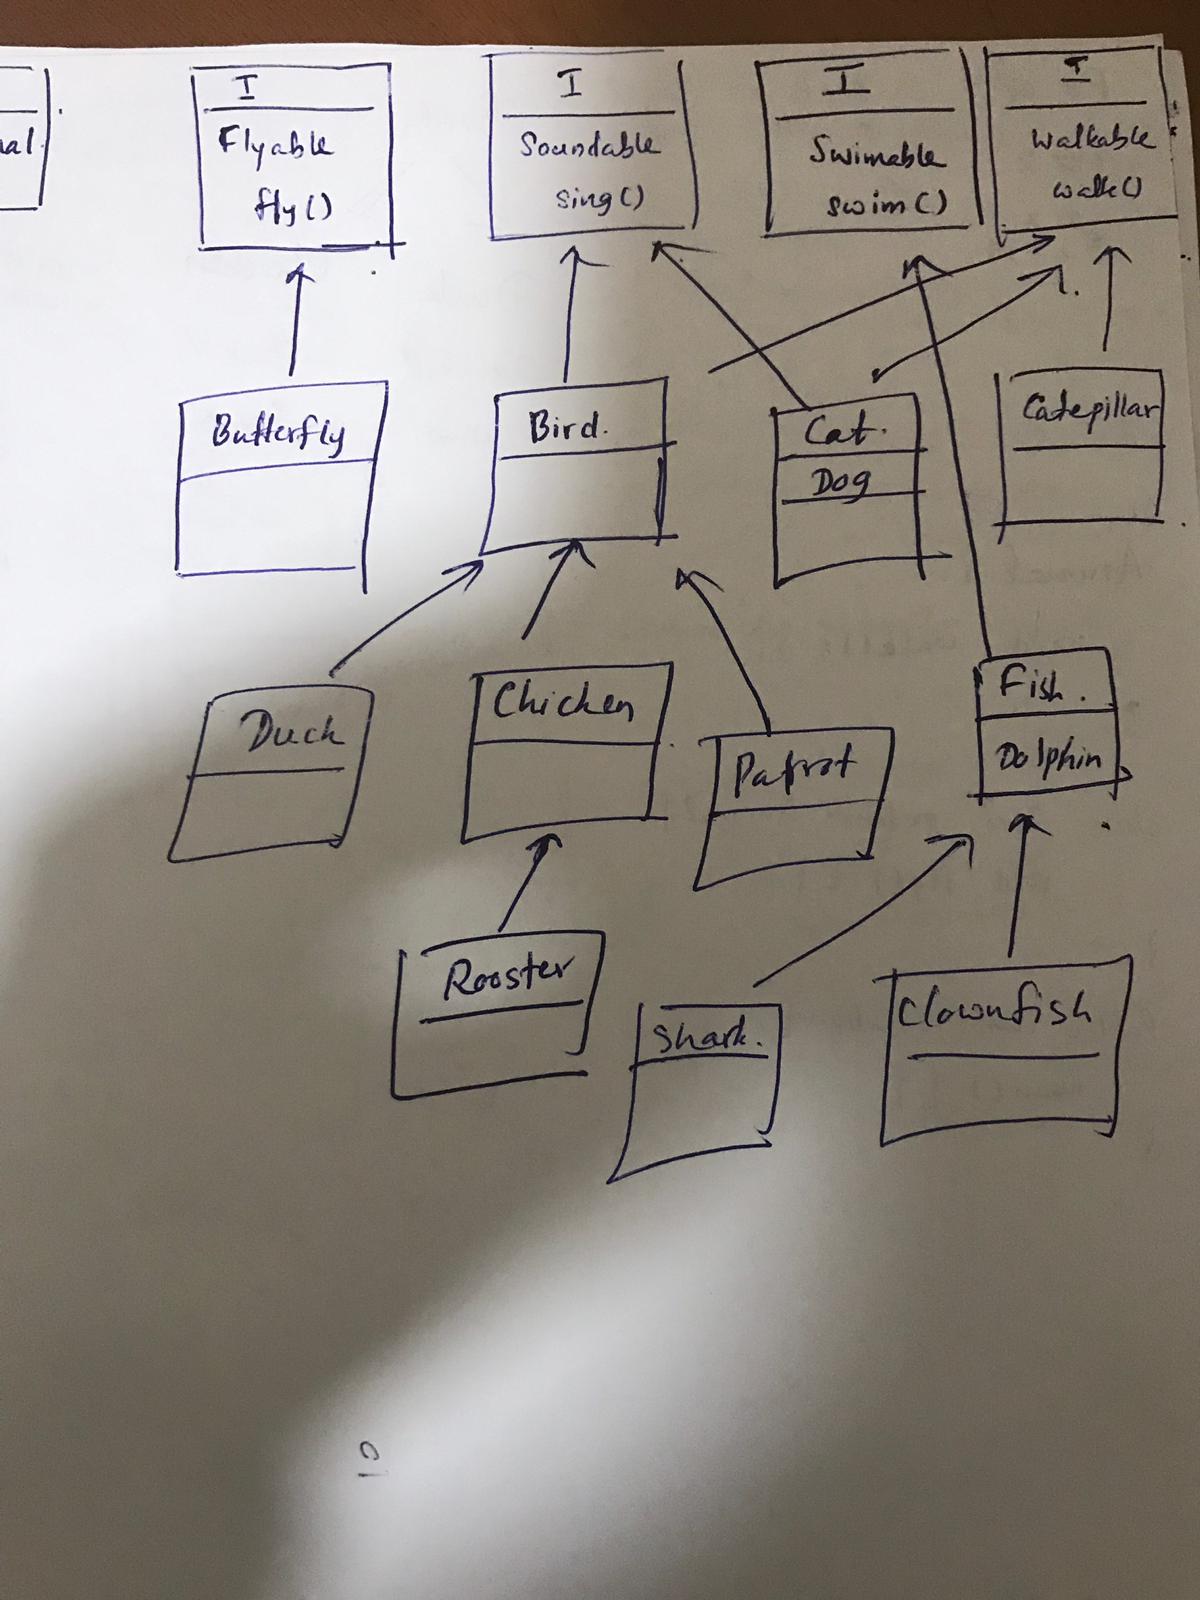 I
I
I
I
Flyable
fly()
Soundable
sing()
Swimable
swim()
Walkable
walk()
Butterfly
Bird.
Cat.
Dog
Catepillar
Duck
Chicken
Parrot
Fish.
Dolphin
Rooster
Shark.
Clownfish